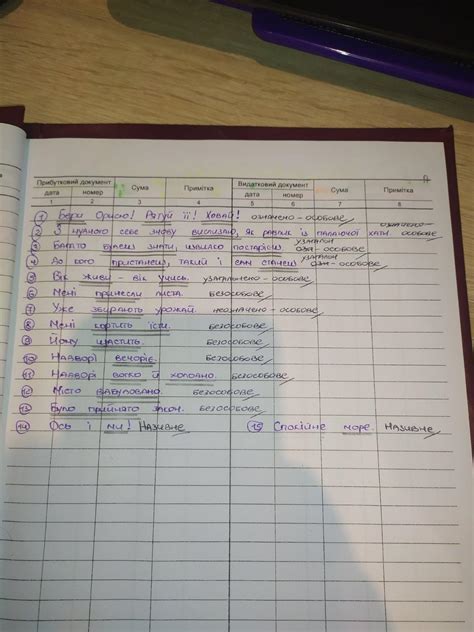 Прибутковий документ Сума Примітка Видатковий документ Сума Примітка
дата номер дата номер
1 2 3 4 5 6 7 8
1 Бери Орисю! Рятуй її! Ховай! означено-особове
2 З нудною себе знову висилаю, як равлик із палаючої хати. означено-особове
3 Багато будеш знати, швидко постарієш узагальн особове
4 До кого пристанеш, такий і сам станеш узагальн особове
5 Вік живи - вік учись. узагальнено-особове
6 Мені принесли листа. безособове
7 Уже збирають урожай. неозначено-особове
8 Мені кортить їсти. безособове
9 Йому щастить. безособове
10 Надворі вечоріє. безособове
11 Надворі вогко й холодно. безособове
12 Місто збудовано. безособове
13 Було прийнято закон. безособове
14 Ось і ми! Називне 15 Спокійне море. Називне